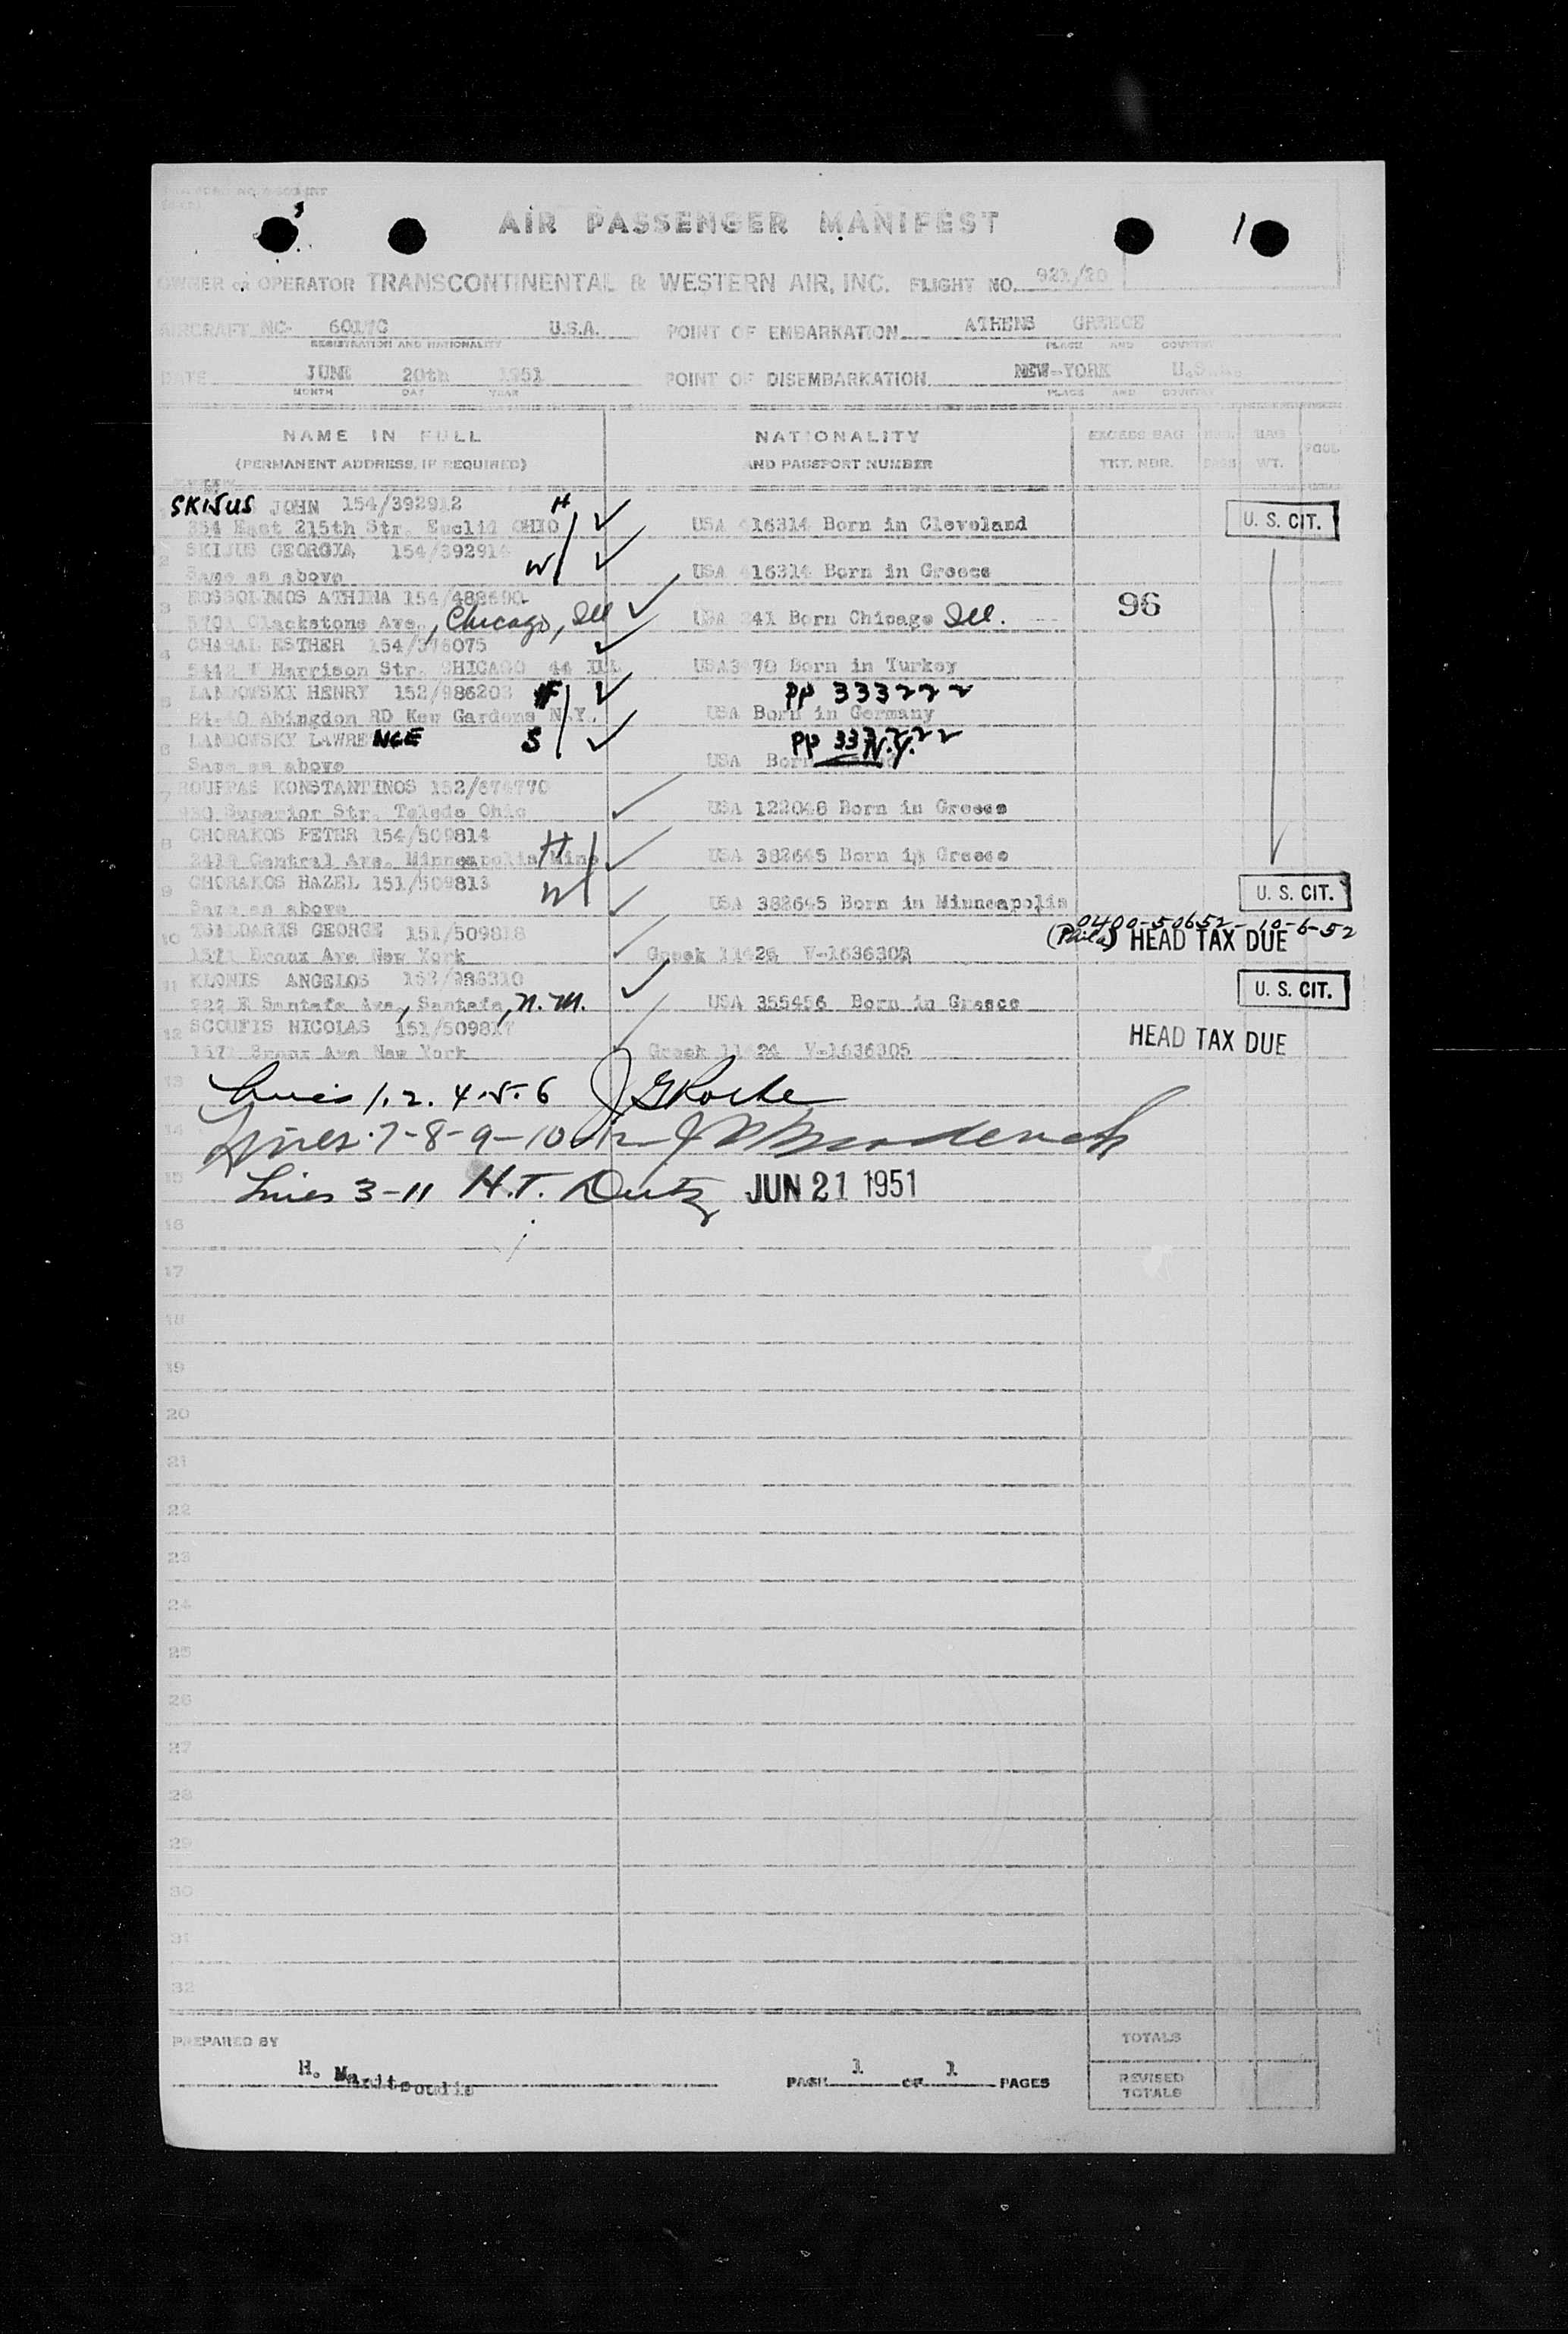 AIR PASSENGER MANIFEST
OWNER or OPERATOR TRANSCONTINENTAL & WESTERN AIR, INC. FLIGHT NO. 921/20
AIRCRAFT NO. 6017C U.S.A. POINT OF EMBARKATION ATHENS GREECE
REGISTRATION AND NATIONALITY PLACE AND COUNTRY
DATE JUNE 20th 1951 POINT OF DISEMBARKATION NEW-YORK U.S.A.
MONTH DAY YEAR PLACE AND COUNTRY
NAME IN FULL NATIONALITY EXCESS BAG BAG
(PERMANENT ADDRESS, IF REQUIRED) AND PASSPORT NUMBER TKT. NBR. WT.
SKIJUS JOHN 154/392912 H
354 East 215th Str. Euclid OHIO USA 416314 Born in Cleveland U. S. CIT.
2 SKIJUS GEORGIA 154/392914 W
Same as above USA 416314 Born in Greece
3 ROSSOLIMOS ATHINA 154/488690
Blackstone Ave., Chicago, Ill USA 241 Born Chicago Ill. 96
4 CHARAL ESTHER 154/376075
5442 W Harrison Str. CHICAGO 44 ILL USA 3 70 Born in Turkey
5 LANDOWSKI HENRY 152/986203 F pp 333222
84-40 Abingdon RD Kew Gardens N.Y. USA Born in Germany
6 LANDOWSKY LAWRENCE S pp 333222
Same as above USA Born N.Y.
7 ROUPPAS KONSTANTINOS 152/674770
930 Superior Str. Toledo Ohio USA 122048 Born in Greece
8 CHORAKOS PETER 154/509814 H
2419 Central Ave. Minneapolis Minn USA 382645 Born in Greece
9 CHORAKOS HAZEL 151/509813 W
Same as above USA 382645 Born in Minneapolis U. S. CIT.
0400-50652- 10-6-52
10 TSALDARIS GEORGE 151/509818 (Phila) HEAD TAX DUE
1571 Bronx Ave New York Greek 11426 V-1636303
11 KLONIS ANGELOS 152/986310 U. S. CIT.
222 E Santafe Ave, Santafe, N.M. USA 355456 Born in Greece
12 SCOUFIS NICOLAS 151/509817 HEAD TAX DUE
1571 Bronx Ave New York Greek 11424 V-1636305
13 Lines 1.2. 4.5.6 J G Roche
14 Lines 7-8-9-10-12
15 Lines 3-11 H.T. Dutz JUN 21 1951
16
17
18
19
20
21
22
23
24
25
26
27
28
29
30
31
32
PREPARED BY TOTALS
H. PAGE 1 OF 1 PAGES REVISED
TOTALS